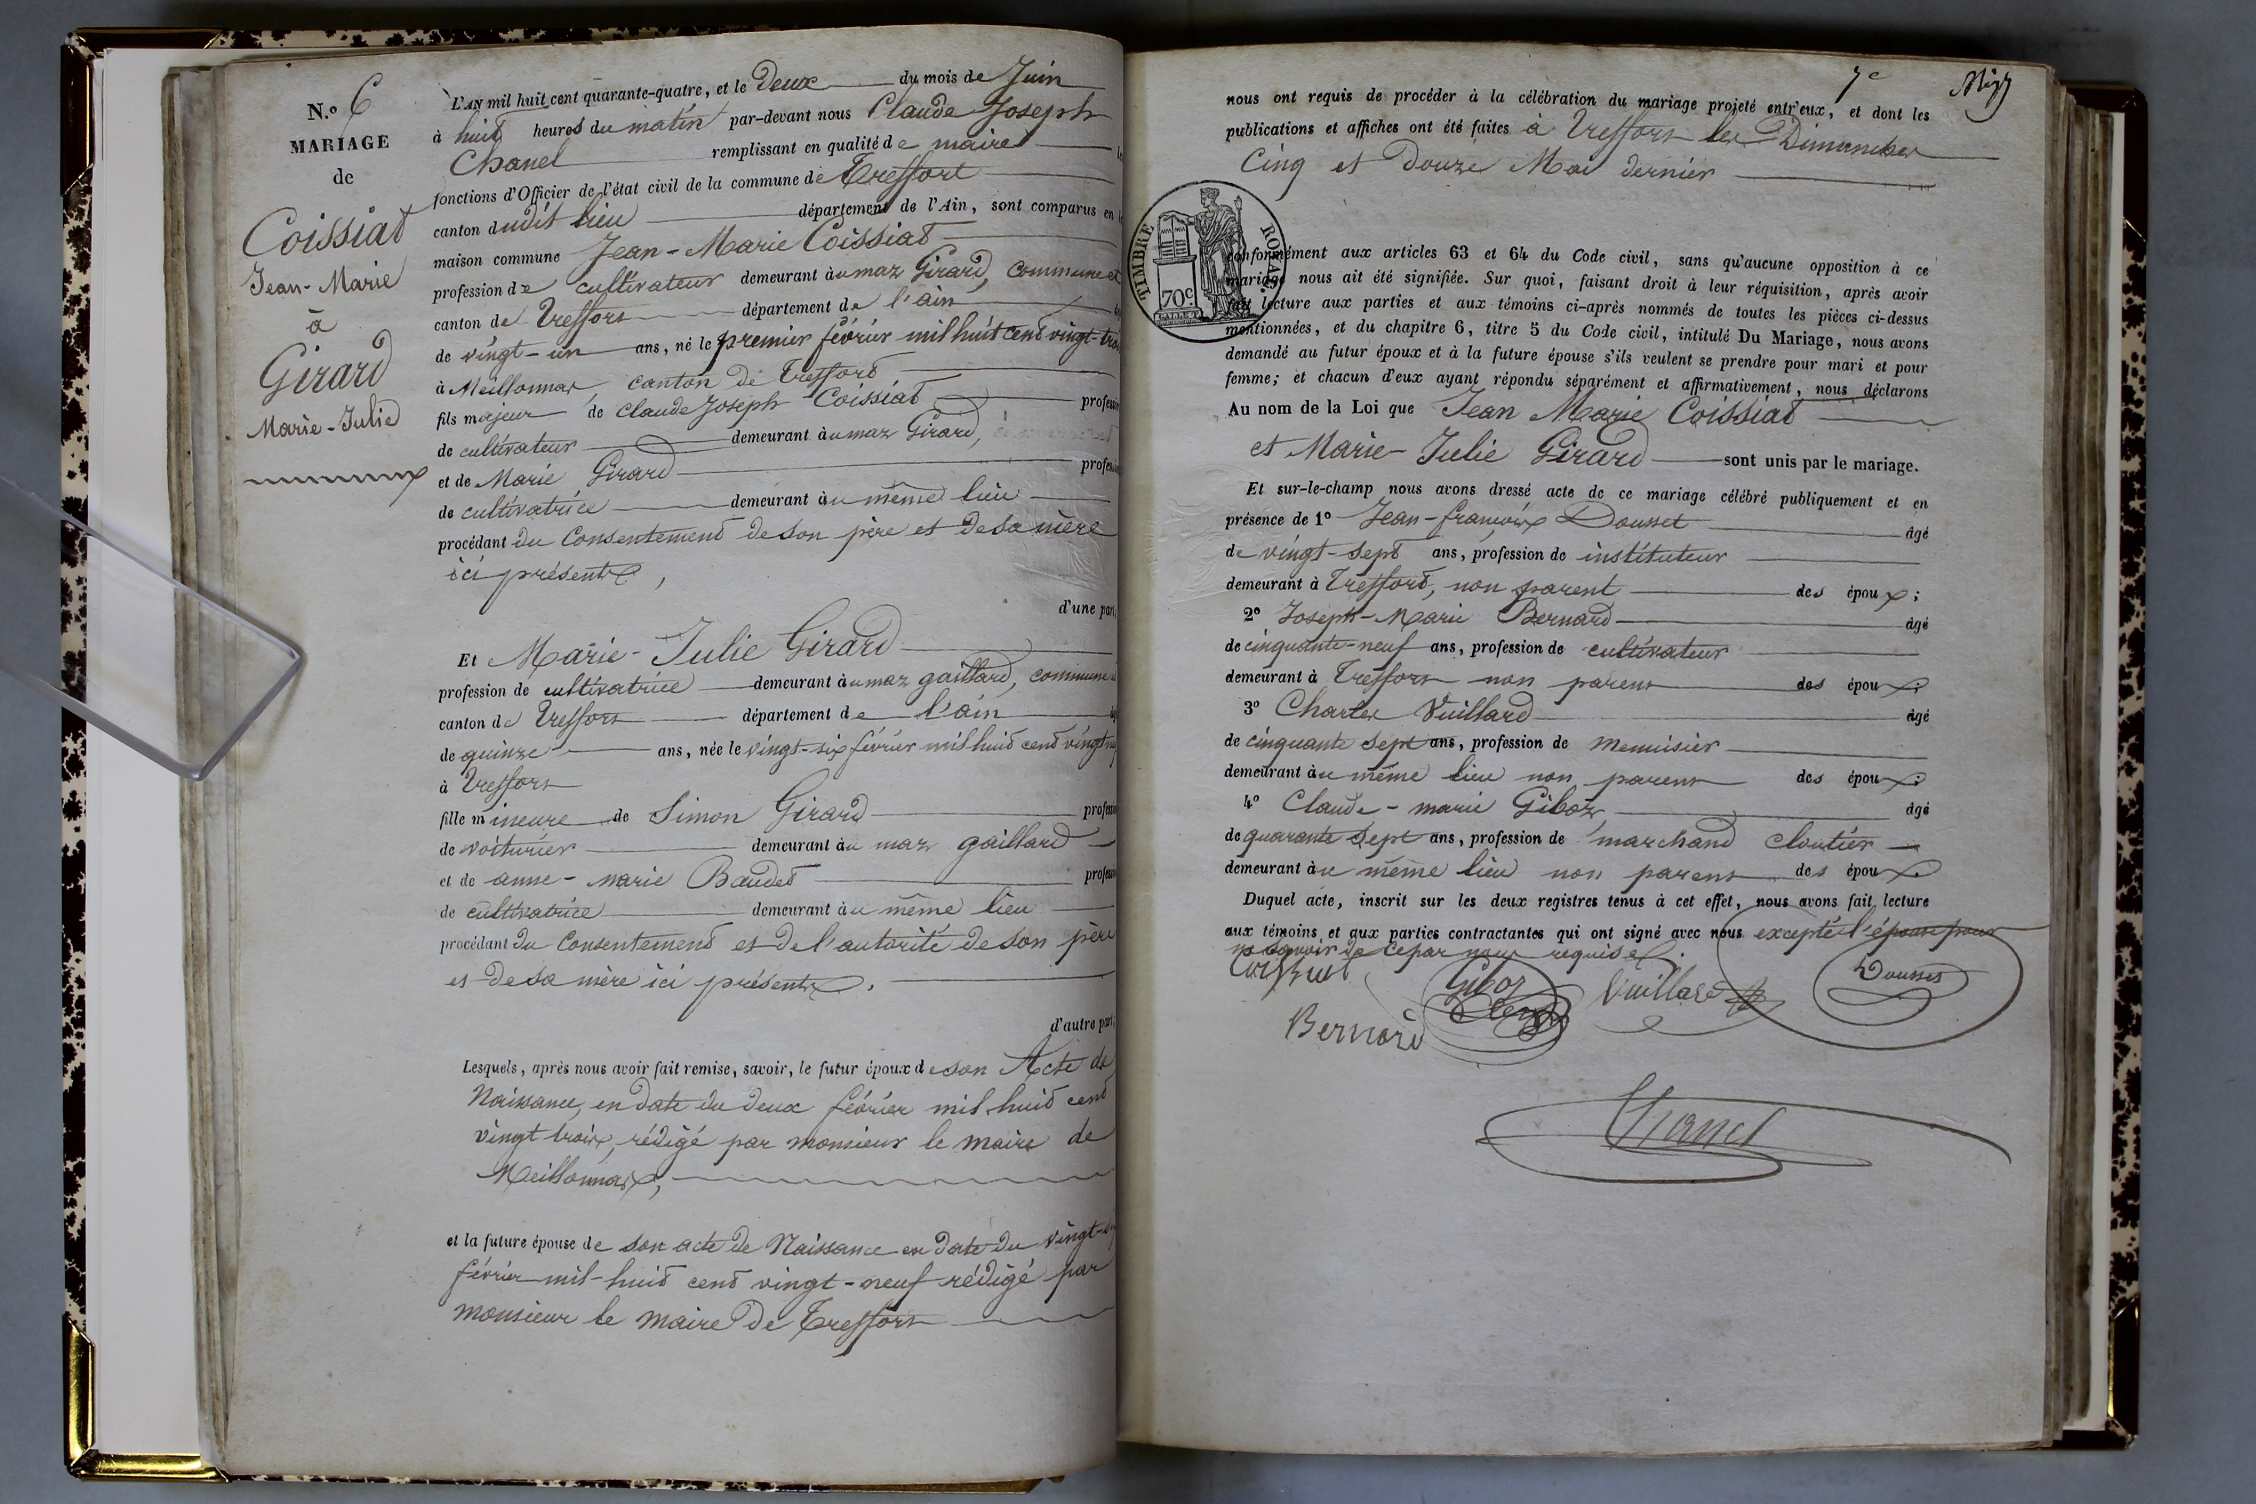 N.º 6
MARIAGE
de
Coissiat
Jean-Marie
à
Girard
Marie-Julie
L'AN mil huit cent quarante-quatre, et le Deux du mois de Juin
à huit heures du matin par-devant nous Claude Joseph
Chanel remplissant en qualité de maire
fonctions d'Officier de l'état civil de la commune de Treffort
canton dudit lieu département de l'Ain, sont comparus en
maison commune Jean-Marie Coissiat
profession de cultivateur demeurant au maz Girard, commune et
canton de Treffort département de l'ain
de vingt-un ans, né le premier février mil huit cent vingt-trois
à Meillonnas, canton de Treffort
fils majeur de Claude Joseph Coissiat
de cultivateur demeurant au maz Girard,
et de Marie Girard
de cultivatrice demeurant au même lieu
procédant du Consentement de son père et de sa mère
ici présents,
d'une part,
Et Marie-Julie Girard
profession de cultivatrice demeurant au maz gaillard, commune
canton de Treffort département de l'ain
de quinze ans, née le vingt-six février mil huit cent vingt
à Treffort
fille mineure de Simon Girard
de voiturier demeurant au maz gaillard
et de anne-marie Baudet
de cultivatrice demeurant au même lieu
procédant du Consentement et de l'autorité de son père
et de sa mère ici présents.
d'autre part,
Lesquels, après nous avoir fait remise, savoir, le futur époux de son Acte de
Naissance, en date du deux février mil huit cent
vingt trois, rédigé par monsieur le maire de
Meillonnas,
et la future épouse de son acte de Naissance en date du vingt-
février mil-huit cent vingt-neuf rédigé par
monsieur le maire de Treffort
7e
nous ont requis de procéder à la célébration du mariage projeté entr'eux, et dont les
publications et affiches ont été faites à Treffort les Dimanches
Cinq et Douze Mai dernier
TIMBRE ROYAL
70c
conformément aux articles 63 et 64 du Code civil, sans qu'aucune opposition à ce
mariage nous ait été signifiée. Sur quoi, faisant droit à leur réquisition, après avoir
fait lecture aux parties et aux témoins ci-après nommés de toutes les pièces ci-dessus
mentionnées, et du chapitre 6, titre 5 du Code civil, intitulé Du Mariage, nous avons
demandé au futur époux et à la future épouse s'ils veulent se prendre pour mari et pour
femme; et chacun d'eux ayant répondu séparément et affirmativement, nous déclarons
Au nom de la Loi que Jean Marie Coissiat
et Marie-Julie Girard sont unis par le mariage.
Et sur-le-champ nous avons dressé acte de ce mariage célébré publiquement et en
présence de 1º Jean-françois Dousset âgé
de vingt-sept ans, profession de instituteur
demeurant à Treffort, non parent des époux;
2º Joseph-Marie Bernard âgé
de cinquante-neuf ans, profession de cultivateur
demeurant à Treffort non parent des époux;
3º Charles Vuillard âgé
de cinquante sept ans, profession de menuisier
demeurant au même lieu non parent des époux;
4º Claude-marie Giboz âgé
de quarante sept ans, profession de marchand cloutier
demeurant au même lieu non parent des époux
Duquel acte, inscrit sur les deux registres tenus à cet effet, nous avons fait lecture
aux témoins et aux parties contractantes qui ont signé avec nous excepté l'épouse pour
ne savoir de ce par nous requise.
Coissiat
Giboz
Vuillard
Dousset
Bernard
Chanel